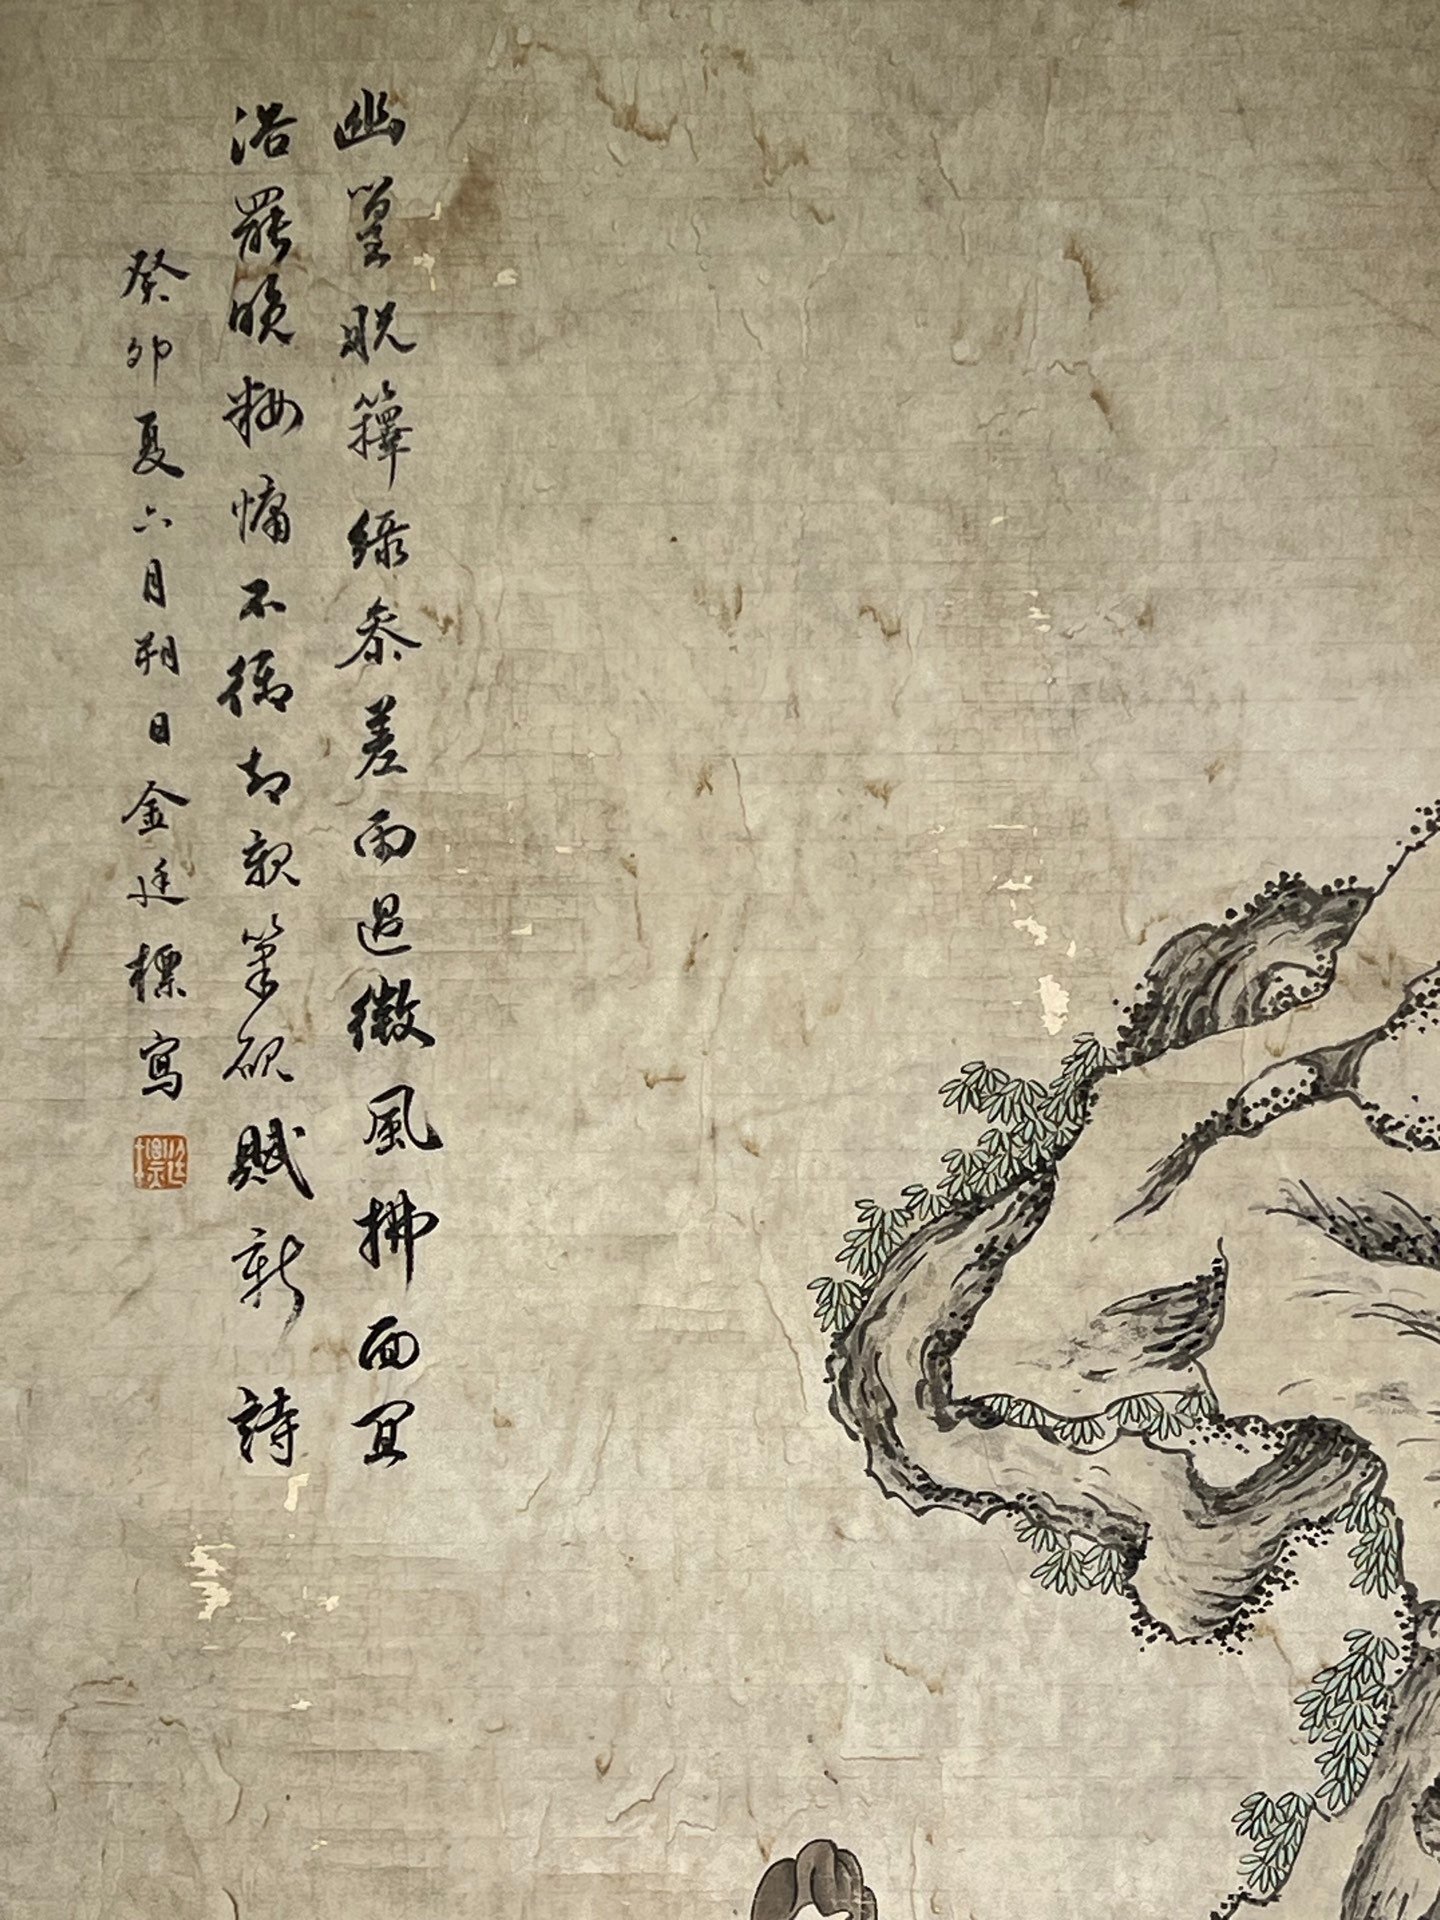 幽篁脱籜綠參差雨過微風拂面宜
浴罷晚粧慵不掃却親筆硯賦新詩
癸卯夏六月朔日金廷標寫